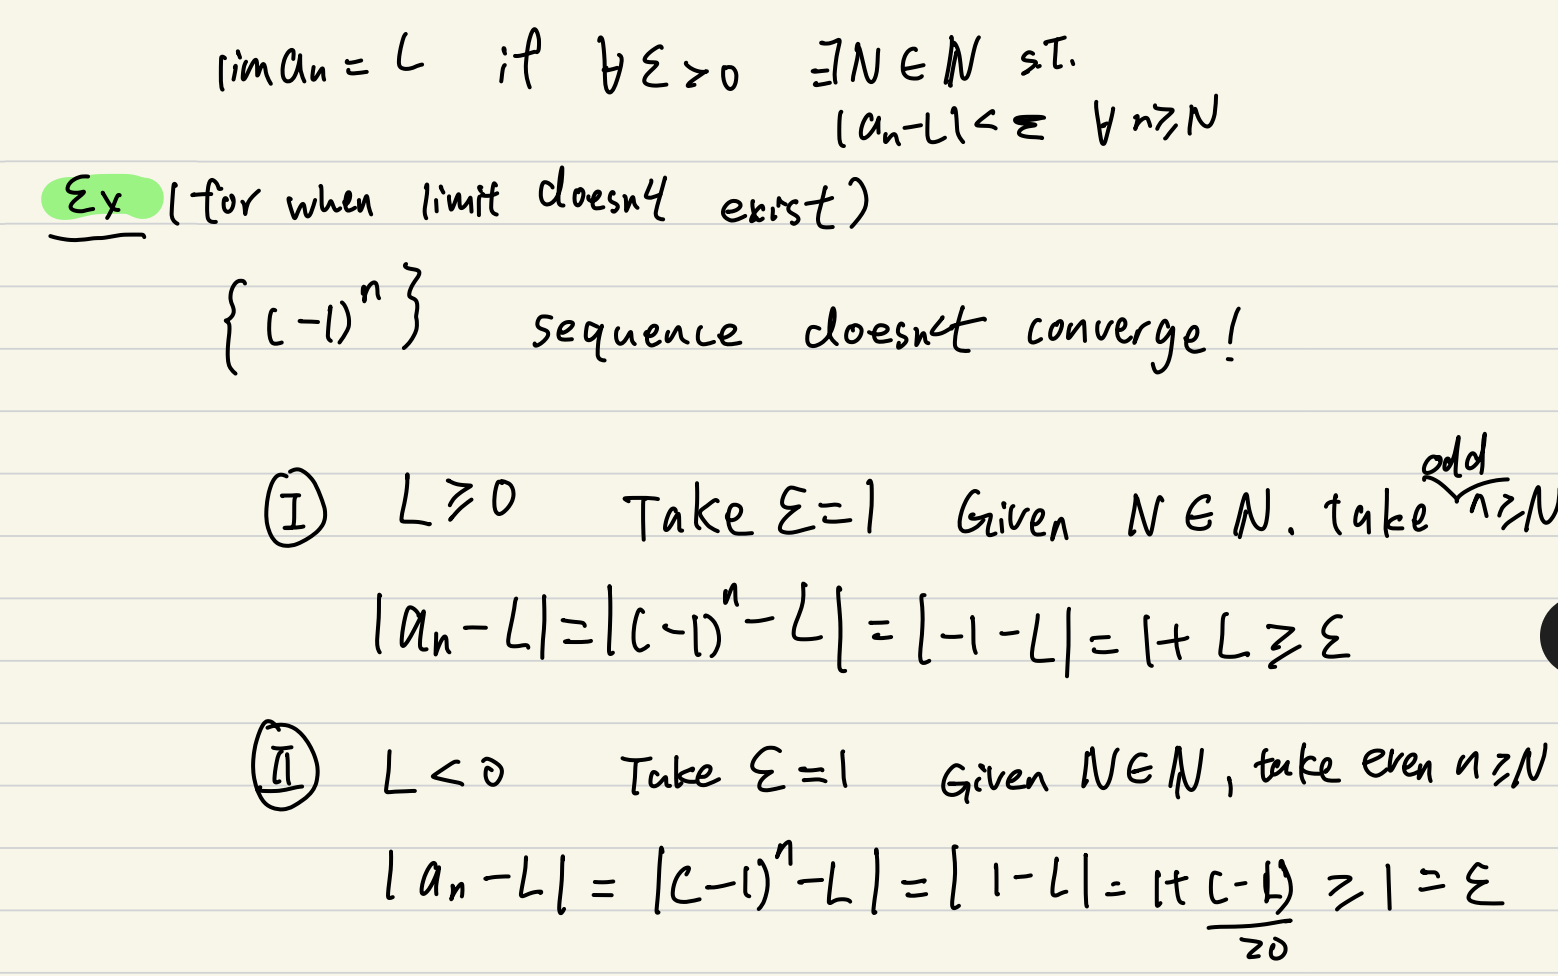 lim aₙ = L if ∀ ε > 0 ∃N ∈ ℕ s.t.
|aₙ-L| < ε ∀ n ≥ N
Ex (for when limit doesn't exist)
{(-1)ⁿ} sequence doesn't converge!
odd
Ⓘ L ≥ 0 Take ε = 1 Given N ∈ ℕ. take n ≥ N
|aₙ - L| = |(-1)ⁿ - L| = |-1 - L| = 1 + L ≥ ε
Ⅱ L < 0 Take ε = 1 Given N ∈ ℕ, take even n ≥ N
|aₙ - L| = |(-1)ⁿ - L| = |1 - L| = 1 + (-L) ≥ 1 = ε
≥0